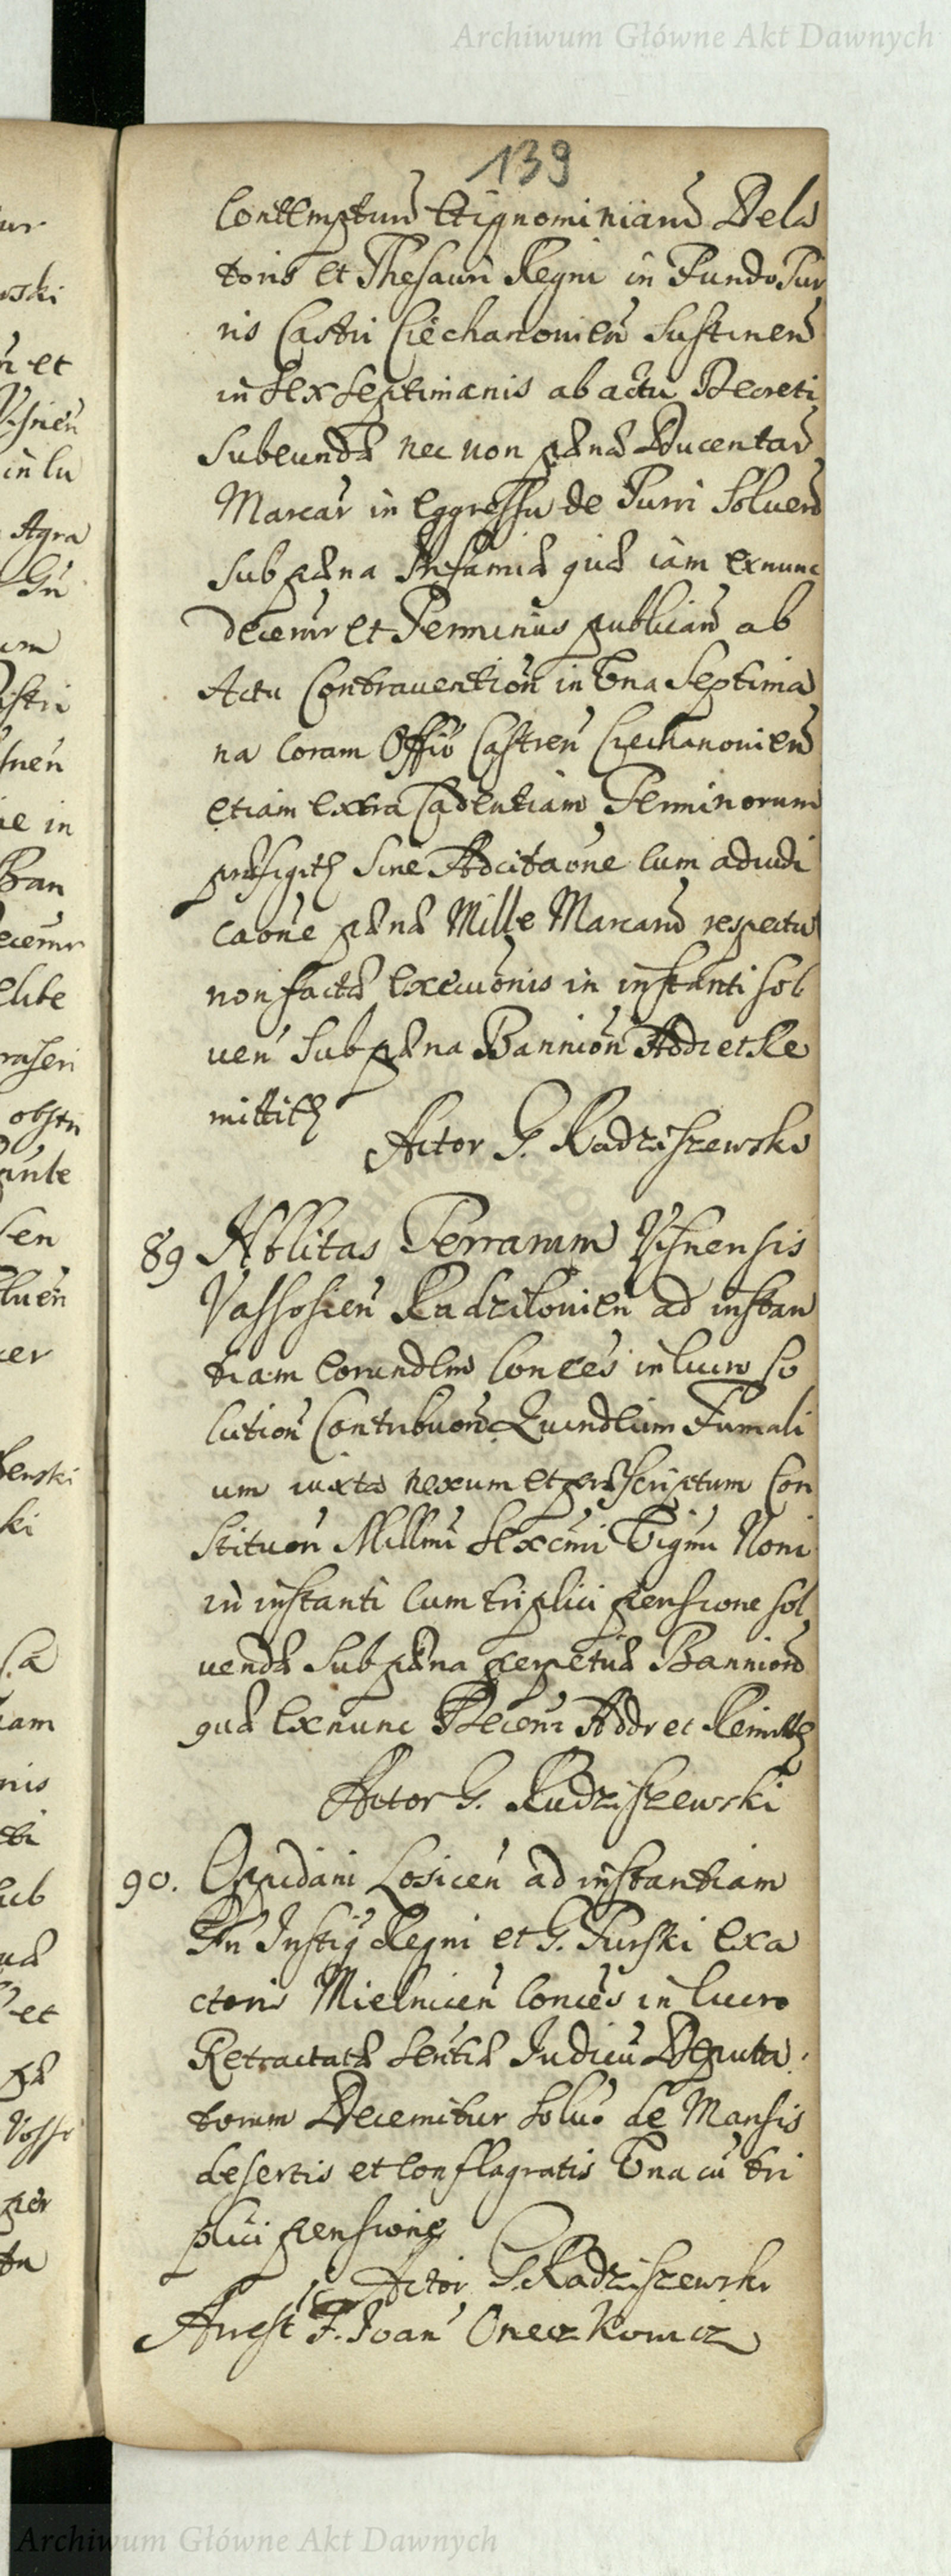 Archiwum Główne Akt Dawnych
139
Contemptum et ignominiam Dela
toris et Thesauri Regni in Fundo Tur
ris Castri Ciechanovien Sustinen
in sex septimanis ab actu Decreti
subeunda nec non pæna Ducentar
Marcar in egressu de Turri Soluen
sub pæna Infamiæ quæ iam exnunc
decernr et Terminus publican ab
Actu Contravention in Una Septima
na coram Offio Castren Ciechanovien
etiam extra Cadentiam Terminorum
præfigitr Sine Adcitaone cum adiudi
caone pænæ Mille Marcarum respectu
non factæ Execuonis in instanti sol
uen sub pæna Bannion Addi et Re
mittitr
Actor G. Radziszewski
89 Nblitas Terrarum Visnensis
Vassosien Radzilovien ad instan
tiam eorundem Conces in lucro so
lution Contribuon Quindecim Fumali
um iuxta nexum et præscriptum Con
stituon Millmi Sexcmi Vigmi Noni
in instanti cum triplici pensione sol
uenda sub pæna perpetuæ Bannion
quæ exnunc Decern Addr et Remittr
Actor G. Radziszewski
90. Oppidani Losicen ad instantiam
In Instig Regni et G. Turski Exa
ctoris Mielnicen Conces in lucro
Retractatæ Sentiæ Iudicii Deputa
torum Decernitur Soluo de Mansis
desertis et conflagratis Una cu tri
plici pensione
Actor G. Radziszewski
Arest F. Joan Oneczkowicz
Archiwum Główne Akt Dawnych